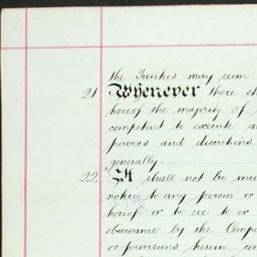 the Trustees may seem
21 Whenever there sh
hereof the majority of
competent to execute a
powers and discretions
generally.
22. It shall not be
to any person or
hereof or to see to or
observance by the Comp
or provisions herein con